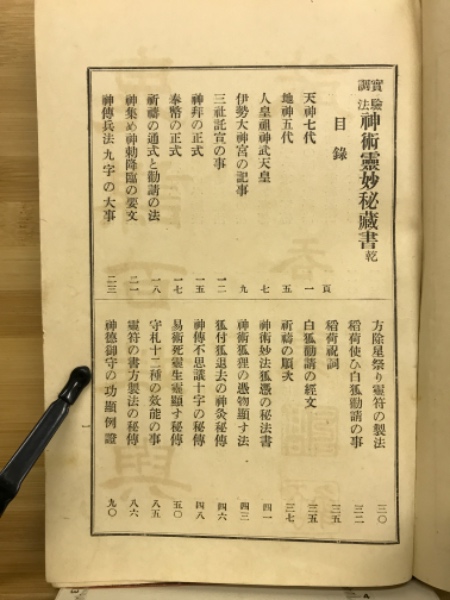 實驗調法神術靈妙秘藏書乾
目錄
頁
天神七代 一
地神五代 五
人皇祖神武天皇 七
伊勢大神宮の記事 九
三社託宣の事 一二
神拜の正式 一五
奉幣の正式 一七
祈禱の通式と勸請の法 一八
神集め神勅降臨の要文 二一
神傳兵法九字の大事 二三
方除星祭り靈符の製法 三〇
稻荷使ひ白狐勸請の事 三二
稻荷祝詞 三五
白狐勸請の經文 三五
祈禱の順次 三七
神術妙法狐憑の秘法書 四一
神術狐狸の憑物顯す法 四三
狐付狐退去の神灸秘傳 四六
神傳不思議十字の秘傳 四八
易術死靈生靈顯す秘傳 五〇
守札十二種の效能の事 八五
靈符の書方製法の秘傳 八六
神德御守の功顯例證 九〇
一